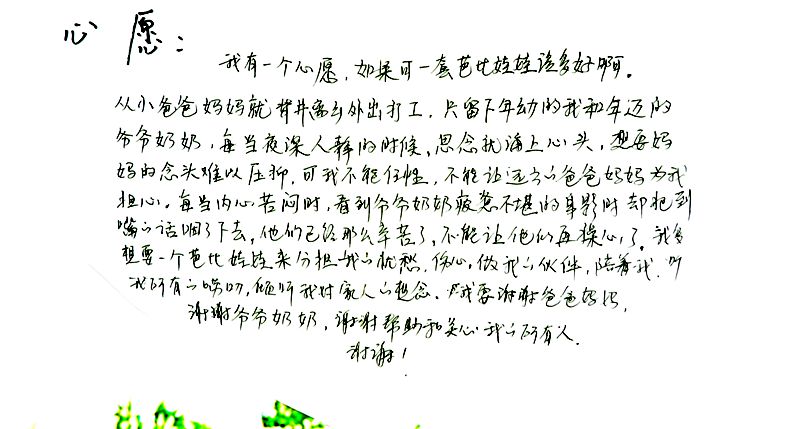 心愿：
我有一个心愿，如果可一套芭比娃娃该多好啊。
从小爸爸妈妈就背井离乡外出打工，只留下年幼的我和年迈的
爷爷奶奶，每当夜深人静的时候，思念就涌上心头，想要妈
妈的念头难以压抑，可我不能任性，不能让远方的爸爸妈妈为我
担心。每当内心苦闷时，看到爷爷奶奶疲惫不堪的身影时却把到
嘴的话咽了下去，他们已经那么辛苦了，不能让他们再操心了。我多
想要一个芭比娃娃来分担我的忧愁，伤心，做我的伙伴，陪着我，听
我所有的唠叨，倾听我对家人的想念。我要谢谢爸爸妈妈，
谢谢爷爷奶奶，谢谢帮助和关心我的所有人。
谢谢！